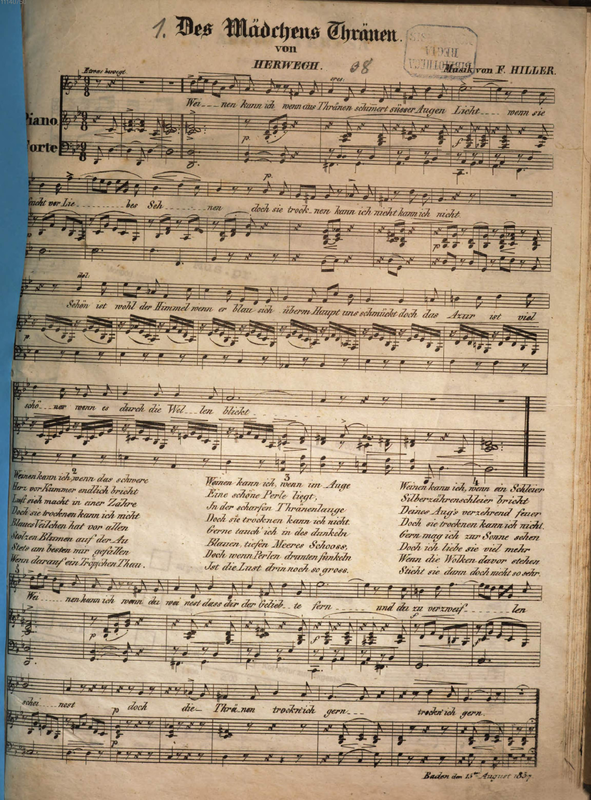 1. Des Mädchens Thränen.
von
HERWEGH. 98
Musik von F. HILLER.
BIBLIOTHECA
REGIA
Etwas bewegt.
cres.
Wei nen kann ich wenn aus Thränen schimert süsser Augen Licht wenn sie
Piano
Forte
p
p.
feucht vor Lie bes Seh nen doch sie trock nen kann ich nicht kann ich nicht
Schön ist wohl der Himmel wenn er blau sich überm Haupt uns schmückt doch das Azur ist viel
schö ner wenn es durch die Wel len blickt
2
Weinen kann ich, wenn das schwere
Herz vor Kummer endlich bricht
Luft sich macht in einer Zähre
Doch sie trocknen kann ich nicht
Blaues Veilchen hat vor allen
Stolzen Blumen auf der Au
Stets am besten mir gefallen
Wenn darauf ein Tröpfchen Thau.
3
Weinen kann ich, wenn im Auge
Eine schöne Perle liegt,
In der scharfen Thränenlauge
Doch sie trocknen kann ich nicht
Gerne tauch' ich in des dunkeln
Blauen, tiefen Meeres Schooss,
Doch wenn Perlen drunten funkeln
Ist die Lust drin noch so gross.
4
Weinen kann ich, wenn ein Schleier
Silberzährenschleier bricht
Deines Aug's verzehrend feuer
Doch sie trocknen kann ich nicht.
Gern mag ich zur Sonne sehen
Doch ich liebe sie viel mehr
Wenn die Wolken davor stehen
Sticht sie dann doch nicht so sehr
Wei nen kann ich wenn du wei nest dass dir der Gelieb te fern und du zu verzweif len
p
schei nest p doch die Thrä nen trockn'ich gern trockn'ich gern.
p
Baden den 15ten August 1837